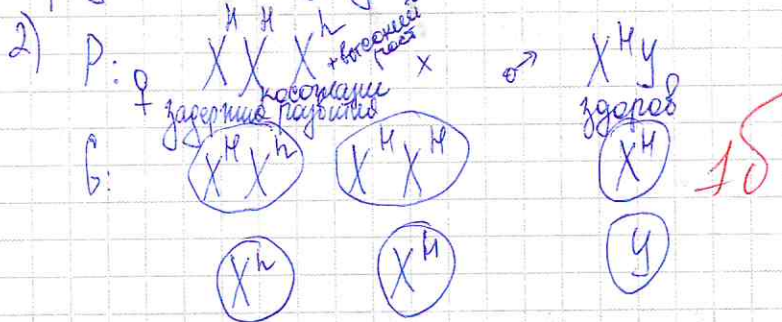 2) P: ♀ X^H X^H X^h + высокий рост × ♂ X^H y
косоглазие
задержка развития здоров
G: X^H X^h X^H X^H X^H 1б
X^h X^H y